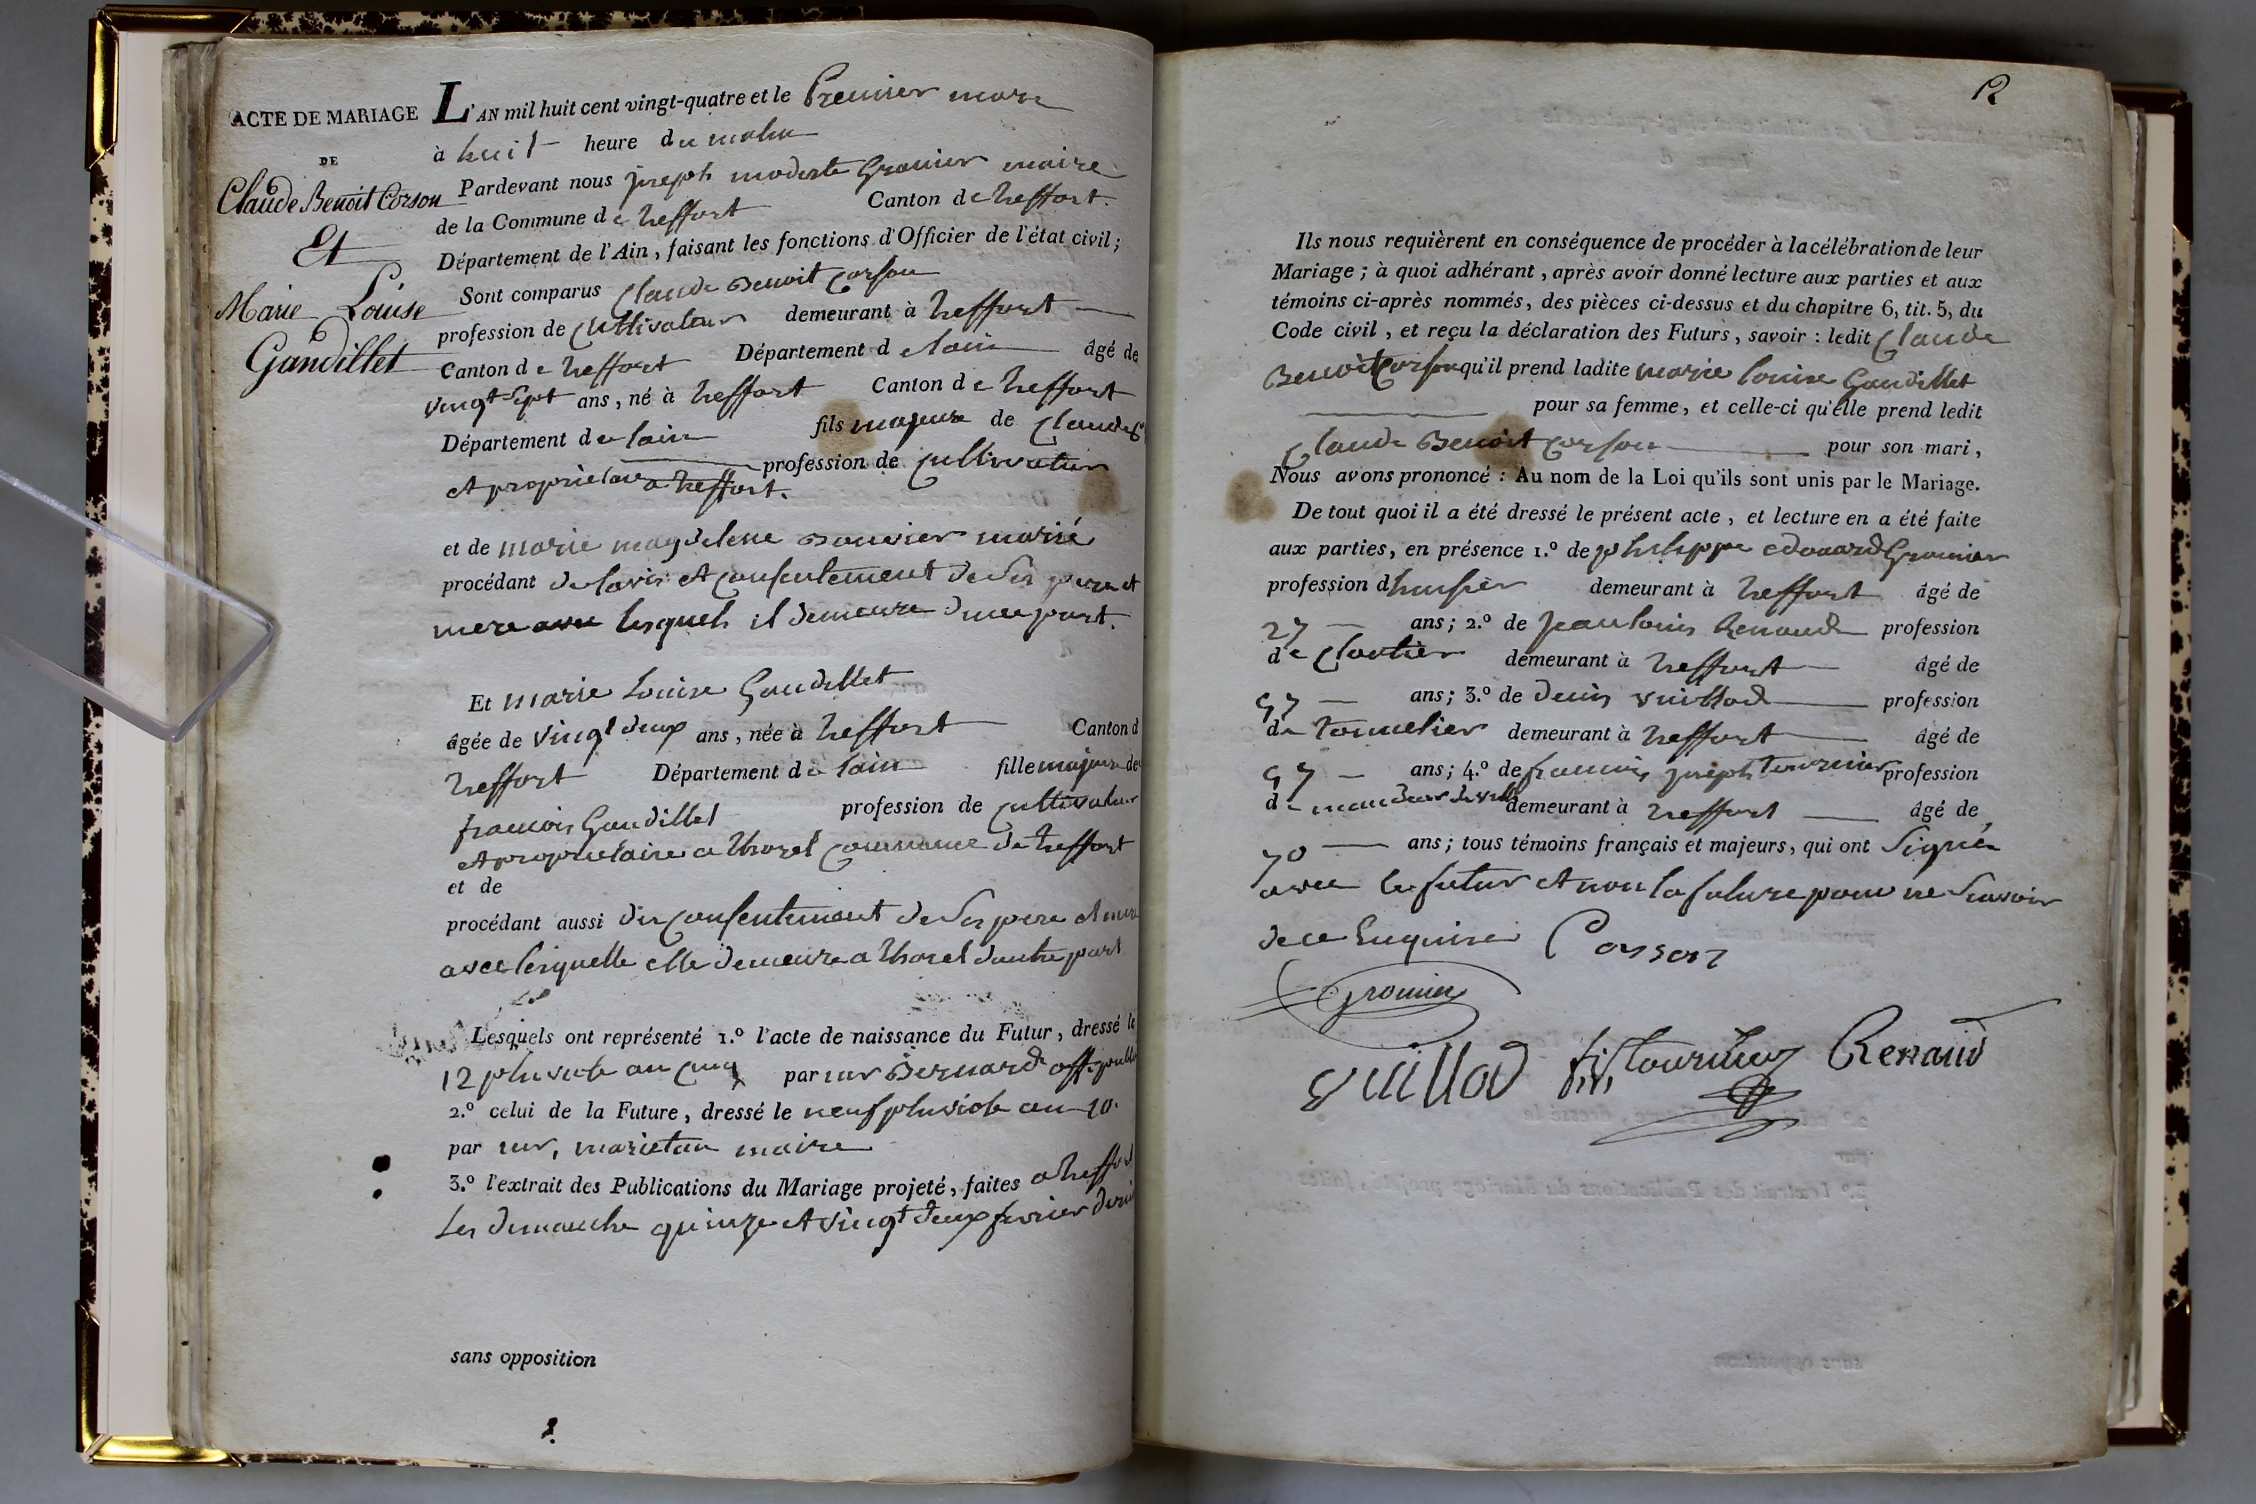 ACTE DE MARIAGE
DE
Claude Benoit Corson
Et
Marie Louise
Gandillet
L'AN mil huit cent vingt-quatre et le Premier mars
à huit heure du matin
Pardevant nous joseph modeste Gromier maire
de la Commune de treffort Canton de treffort.
Département de l'Ain, faisant les fonctions d'Officier de l'état civil;
Sont comparus Claude Benoit Corson
profession de Cultivateur demeurant à treffort
Canton de treffort Département de lain âgé de
vingt Sept ans, né à treffort Canton de treffort
Département de lain fils majeur de Claude
profession de Cultivateur
et proprietaire a treffort.
et de marie magdelene Bouvier marié
procédant de lavis et Consentement de Ses pere et
mere avec lesquels il demeure dune part.
Et marie Louise Gandillet
âgée de vingt deux ans, née à treffort Canton d
treffort Département de lain fille majeure de
francois Gandillet profession de Cultivateur
et proprietaire a thorel Commune de treffort
et de
procédant aussi du Consentement de Ses pere et mere
avec lesquelle elle demeure a thorel dautre part
Lesquels ont représenté 1.º l'acte de naissance du Futur, dressé le
12 pluviose an Cinq par mr Bernard off. public
2.º celui de la Future, dressé le neuf pluviose an 10.
par mr, marietan maire
3.º l'extrait des Publications du Mariage projeté, faites a treffort
Les dimanche quinze et vingt deux fevrier dernier
sans opposition
2.
12
Ils nous requièrent en conséquence de procéder à la célébration de leur
Mariage; à quoi adhérant, après avoir donné lecture aux parties et aux
témoins ci-après nommés, des pièces ci-dessus et du chapitre 6, tit. 5, du
Code civil, et reçu la déclaration des Futurs, savoir: ledit Claude
Benoit Corson qu'il prend ladite marie Louise Gandillet
pour sa femme, et celle-ci qu'elle prend ledit
Claude Benoit Corson pour son mari,
Nous avons prononcé: Au nom de la Loi qu'ils sont unis par le Mariage.
De tout quoi il a été dressé le présent acte, et lecture en a été faite
aux parties, en présence 1.º de philippe edouard Gromier
profession dhuissier demeurant à treffort âgé de
27 ans; 2.º de jean louis Renaud profession
de Cloutier demeurant à treffort âgé de
57 ans; 3.º de denis vuillod profession
de tonnelier demeurant à treffort âgé de
57 ans; 4.º de francois joseph tournier profession
de mandeur de ville demeurant à treffort âgé de
70 ans; tous témoins français et majeurs, qui ont Signés
avec le futur et non la future pour ne Scavoir
de ce Enquise Corson
Gromier
vuillod tournier Renaud